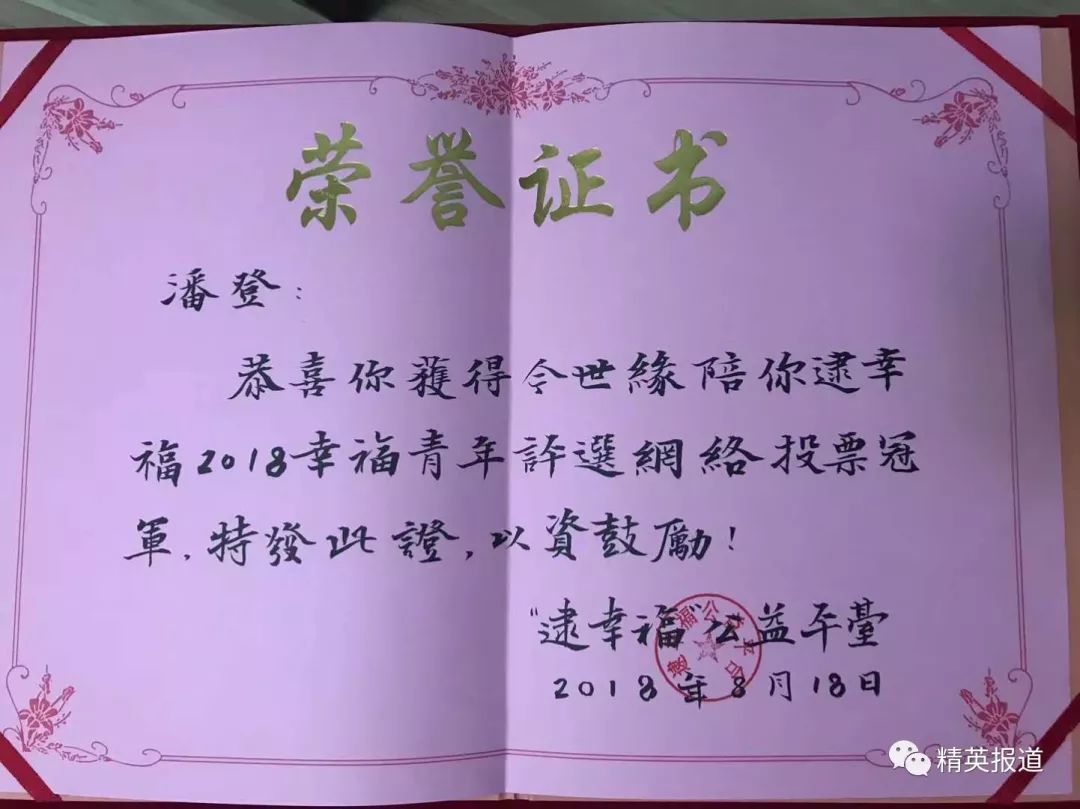 荣誉证书
潘登：
恭喜你獲得令世緣陪你逮幸
福2018幸福青年評選網絡投票冠
軍，特發此證，以資鼓勵！
"逮幸福"公益平臺
2018年8月18日
精英报道